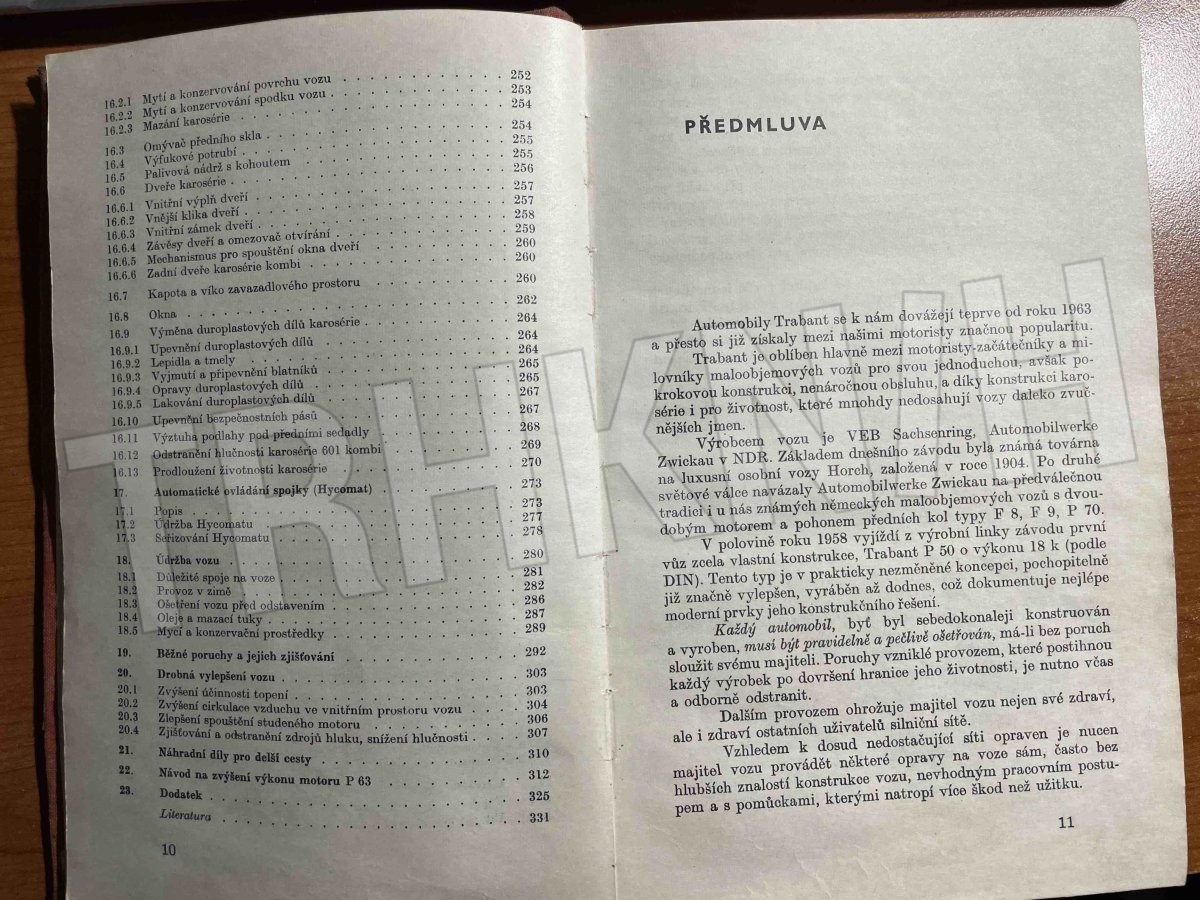 16.2.1 Mytí a konzervování povrchu vozu . . . . . . . . . . . . 252
16.2.2 Mytí a konzervování spodku vozu . . . . . . . . . . . . 253
16.2.3 Mazání karosérie . . . . . . . . . . . . 254
16.3 Omývač předního skla . . . . . . . . . . . . 254
16.4 Výfukové potrubí . . . . . . . . . . . . 255
16.5 Palivová nádrž s kohoutem . . . . . . . . . . . . 255
16.6 Dveře karosérie . . . . . . . . . . . . 256
16.6.1 Vnitřní výplň dveří . . . . . . . . . . . . 257
16.6.2 Vnější klika dveří . . . . . . . . . . . . 257
16.6.3 Vnitřní zámek dveří . . . . . . . . . . . . 258
16.6.4 Závěsy dveří a omezovač otvírání . . . . . . . . . . . . 259
16.6.5 Mechanismus pro spouštění okna dveří . . . . . . . . . . . . 260
16.6.6 Zadní dveře karosérie kombi . . . . . . . . . . . . 260
16.7 Kapota a víko zavazadlového prostoru . . . . . . . . . . . . 260
16.8 Okna . . . . . . . . . . . . 262
16.9 Výměna duroplastových dílů karosérie . . . . . . . . . . . . 264
16.9.1 Upevnění duroplastových dílů . . . . . . . . . . . . 264
16.9.2 Lepidla a tmely . . . . . . . . . . . . 264
16.9.3 Vyjmutí a připevnění blatníků . . . . . . . . . . . . 265
16.9.4 Opravy duroplastových dílů . . . . . . . . . . . . 265
16.9.5 Lakování duroplastových dílů . . . . . . . . . . . . 267
16.10 Upevnění bezpečnostních pásů . . . . . . . . . . . . 267
16.11 Výztuha podlahy pod předními sedadly . . . . . . . . . . . . 268
16.12 Odstranění hlučnosti karosérie 601 kombi . . . . . . . . . . . . 269
16.13 Prodloužení životnosti karosérie . . . . . . . . . . . . 270
17. Automatické ovládání spojky (Hycomat) . . . . . . . . . . . . 273
17.1 Popis . . . . . . . . . . . . 273
17.2 Údržba Hycomatu . . . . . . . . . . . . 277
17.3 Seřizování Hycomatu . . . . . . . . . . . . 278
18. Údržba vozu . . . . . . . . . . . . 280
18.1 Důležité spoje na voze . . . . . . . . . . . . 281
18.2 Provoz v zimě . . . . . . . . . . . . 282
18.3 Ošetření vozu před odstavením . . . . . . . . . . . . 286
18.4 Oleje a mazací tuky . . . . . . . . . . . . 287
18.5 Mycí a konzervační prostředky . . . . . . . . . . . . 289
19. Běžné poruchy a jejich zjišťování . . . . . . . . . . . . 292
20. Drobná vylepšení vozu . . . . . . . . . . . . 303
20.1 Zvýšení účinnosti topení . . . . . . . . . . . . 303
20.2 Zvýšení cirkulace vzduchu ve vnitřním prostoru vozu . . . . . . . . 304
20.3 Zlepšení spouštění studeného motoru . . . . . . . . . . . . 306
20.4 Zjišťování a odstranění zdrojů hluku, snížení hlučnosti . . . . . . . . 307
21. Náhradní díly pro delší cesty . . . . . . . . . . . . 310
22. Návod na zvýšení výkonu motoru P 63 . . . . . . . . . . . . 312
23. Dodatek . . . . . . . . . . . . 325
Literatura . . . . . . . . . . . . 331
10
PŘEDMLUVA
Automobily Trabant se k nám dovážejí teprve od roku 1963
a přesto si již získaly mezi našimi motoristy značnou popularitu.
Trabant je oblíben hlavně mezi motoristy-začátečníky a mi-
lovníky maloobjemových vozů pro svou jednoduchou, avšak po-
krokovou konstrukci, nenáročnou obsluhu, a díky konstrukci karo-
série i pro životnost, které mnohdy nedosahují vozy daleko zvuč-
nějších jmen.
Výrobcem vozu je VEB Sachsenring, Automobilwerke
Zwickau v NDR. Základem dnešního závodu byla známá továrna
na luxusní osobní vozy Horch, založená v roce 1904. Po druhé
světové válce navázaly Automobilwerke Zwickau na předválečnou
tradici i u nás známých německých maloobjemových vozů s dvou-
dobým motorem a pohonem předních kol typy F 8, F 9, P 70.
V polovině roku 1958 vyjíždí z výrobní linky závodu první
vůz zcela vlastní konstrukce, Trabant P 50 o výkonu 18 k (podle
DIN). Tento typ je v prakticky nezměněné koncepci, pochopitelně
již značně vylepšen, vyráběn až dodnes, což dokumentuje nejlépe
moderní prvky jeho konstrukčního řešení.
Každý automobil, byť byl sebedokonaleji konstruován
a vyroben, musí být pravidelně a pečlivě ošetřován, má-li bez poruch
sloužit svému majiteli. Poruchy vzniklé provozem, které postihnou
každý výrobek po dovršení hranice jeho životnosti, je nutno včas
a odborně odstranit.
Dalším provozem ohrožuje majitel vozu nejen své zdraví,
ale i zdraví ostatních uživatelů silniční sítě.
Vzhledem k dosud nedostačující síti opraven je nucen
majitel vozu provádět některé opravy na voze sám, často bez
hlubších znalostí konstrukce vozu, nevhodným pracovním postu-
pem a s pomůckami, kterými natropí více škod než užitku.
11
TRHKNIH